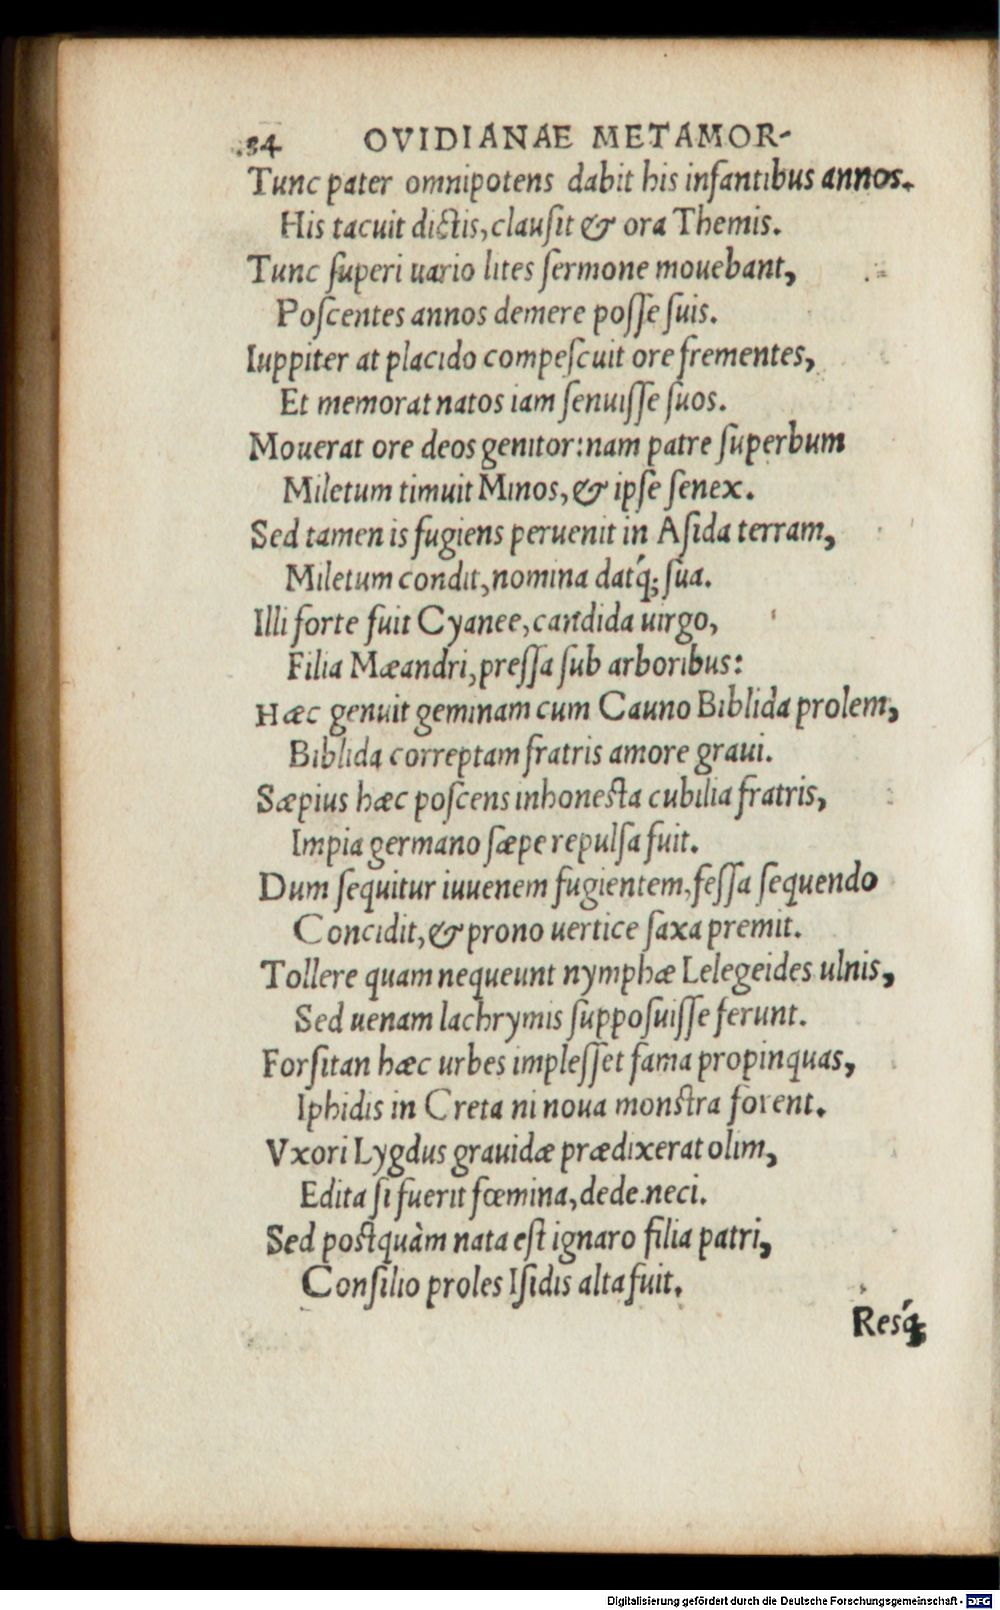 54 OVIDIANAE METAMOR-
Tunc pater omnipotens dabit his infantibus annos.
His tacuit dictis, clauſit & ora Themis.
Tunc ſuperi uario lites ſermone mouebant,
Poſcentes annos demere poſſe ſuis.
Iuppiter at placido compeſcuit ore frementes,
Et memorat natos iam ſenuiſſe ſuos.
Mouerat ore deos genitor: nam patre ſuperbum
Miletum timuit Minos, & ipſe ſenex.
Sed tamen is fugiens peruenit in Aſida terram,
Miletum condit, nomina datq́; ſua.
Illi forte fuit Cyanee, candida uirgo,
Filia Mæandri, preſſa ſub arboribus:
Hæc genuit geminam cum Cauno Biblida prolem,
Biblida correptam fratris amore graui.
Sæpius hæc poſcens inhoneſta cubilia fratris,
Impia germano ſæpe repulſa fuit.
Dum ſequitur iuuenem fugientem, feſſa ſequendo
Concidit, & prono uertice ſaxa premit.
Tollere quam nequeunt nymphæ Lelegeides ulnis,
Sed uenam lachrymis ſuppoſuiſſe ferunt.
Forſitan hæc urbes impleſſet fama propinquas,
Iphidis in Creta ni noua monſtra forent.
Vxori Lygdus grauidæ prædixerat olim,
Edita ſi fuerit fœmina, dede neci.
Sed poſtquàm nata eſt ignaro filia patri,
Conſilio proles Iſidis alta fuit.
Resq́;
Digitalisierung gefördert durch die Deutsche Forschungsgemeinschaft - DFG